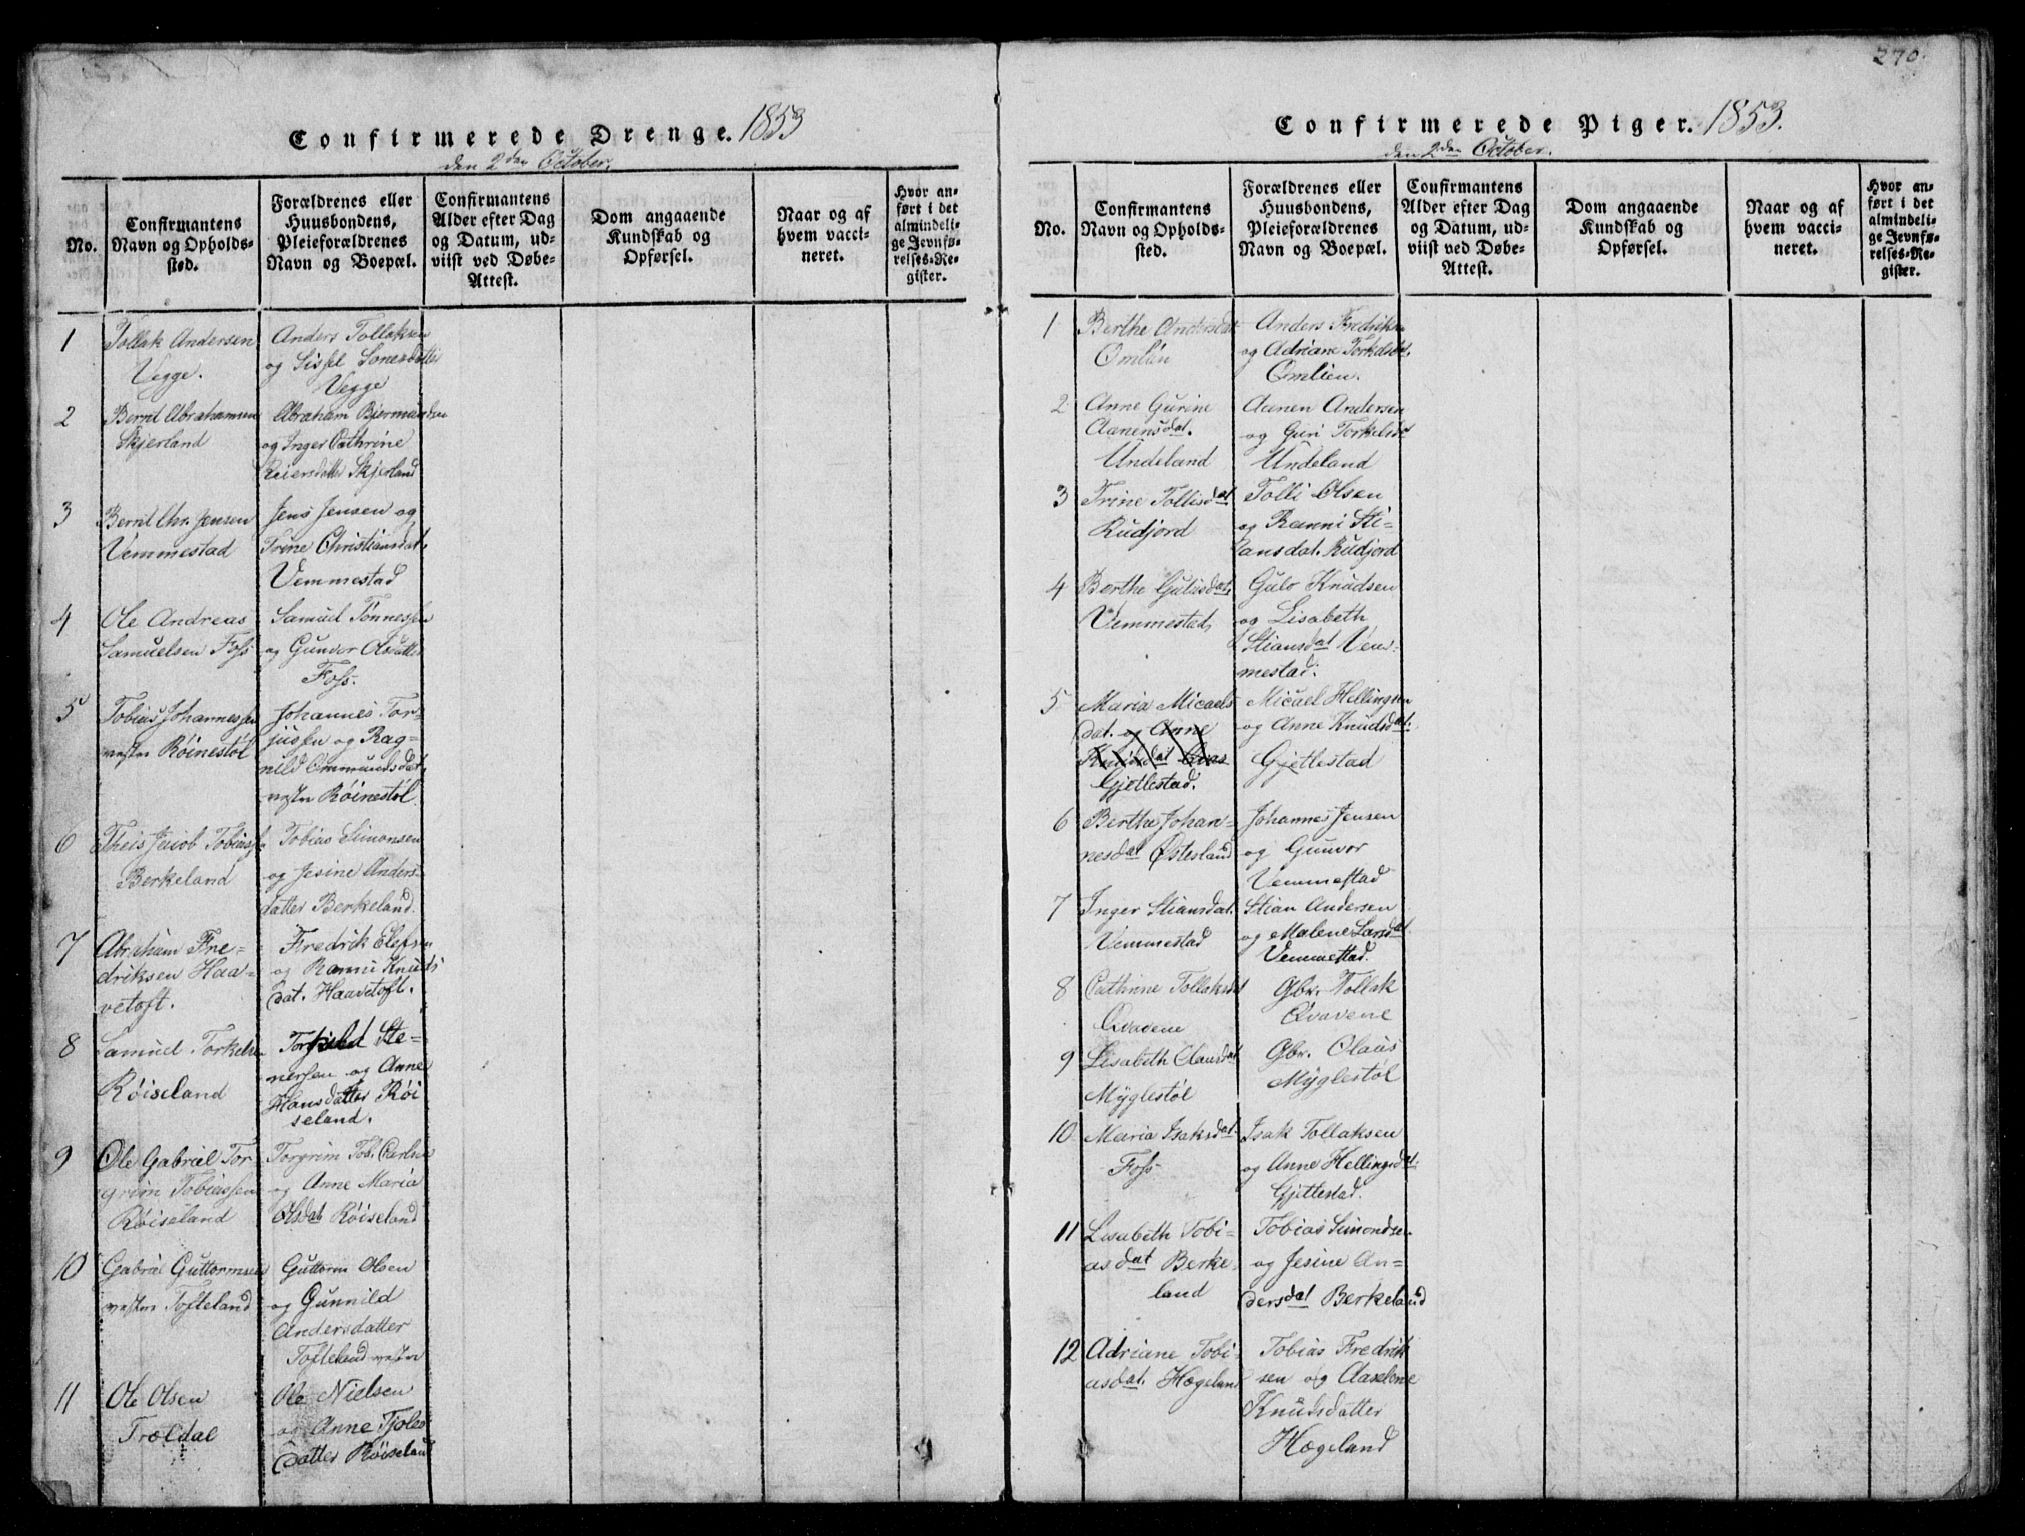 Confirmerede Drenge. 1853
den 2den October.
No.
Confirmantens
Navn og Opholds-
sted.
Forældrenes eller
Huusbondens,
Pleieforældrenes
Navn og Boepæl.
Confirmantens
Alder efter Dag
og Datum, ud-
viist ved Døbe-
Attest.
Dom angaaende
Kundskab og
Opførsel.
Naar og af
hvem vacci-
neret.
Hvor an-
ført i det
almindeli-
ge Jevnfø-
relses-Re-
gister.
1
Tollak Andersen
Vegge.
Anders Tollaksen
og Sissel
Vegge
2
Bernt Abrahamsen
Skjerland
Abraham
og Inger Cathrine
Reiersdatter Skjerland
3
Bernt Chr. Jensen
Vemmestad
Jens Jensen og
Trine Christiansdat.
Vemmestad
4
Ole Andreas
Samuelsen Foss
Samuel Tønnessen
og Gunvor Olsdatter
Foss.
5
Tobias Johannessen
vestre Røinestøl
Johannes Tor-
jussen og Rag-
nild Ommundsdat.
vestre Røinestøl
6
Theis Jacob Tobiass.
Berkeland
Tobias Simonsen
og Jesine Anders-
datter Berkeland.
7
Abraham Fre-
driksen Haa-
vetoft.
Fredrik Elefsen
og Ranni Knuds
dat. Haavetoft.
8
Samuel Torkelsen
Røiseland
Ste-
nersen og Anne
Hansdatter Røi
seland.
9
Ole Gabriel Tor
grim Tobiassen
Røiseland
Torgrim Tob. Carlsen
og Anne Maria
Olsdat Røiseland
10
Gabriel Guttormsen
vestre Tofteland
Guttorm Olsen
og Gunnild
Andersdatter
Tofteland vestre
11
Ole Olsen
Trældal
Ole Nielsen
og Anne Tjøls
datter Røiseland
270.
Confirmerede Piger. 1853.
den 2den October.
No.
Confirmantens
Navn og Opholds-
sted.
Forældrenes eller
Huusbondens,
Pleieforældrenes
Navn og Boepæl.
Confirmantens
Alder efter Dag
og Datum, ud-
viist ved Døbe-
Attest.
Dom angaaende
Kundskab og
Opførsel.
Naar og af
hvem vacci-
neret.
Hvor an-
ført i det
almindeli-
ge Jevnfø-
relses-Re-
gister.
1
Berthe Andersdat
Omlin
Anders Fredriks
og Adriane Torkelsdat.
Omlien.
2
Anne Gurine
Aanensdat.
Undeland
Aanen Andersen
og Guri Torkelsd
Undeland
3
Trine Tollisdat
Rudjord
Tolli Olsen
og Ranni Sti-
ansdat. Rudjord
4
Berthe Gulusdat.
Vemmestad,
Gulo Knudsen
og Lisabeth
Stiansdat Vem-
mestad.
5
Maria Micaels
dat. og Anne
Knudsdat
Gjettestad.
Micael Hellingsen
og Anne Knudsdat.
Gjettestad
6
Berthe Johan-
nesdat Østesland
Johannes Jensen
og Gunvor
Vemmestad
7
Inger Stiansdat.
Vemmestad
Stian Andersen
og Malene Larsdat
Vemmestad.
8
Cathrine Tollaksdat
Qvavene
Gbr. Tollak
Qvavene
9
Lisabeth Olausdat
Myglestøl
Gbr. Olaus
Myglestøl
10
Maria Isaksdat.
Foss
Isak Tollaksen
og Anne Hellingsdat.
Gjettestad.
11
Lisabeth Tobi-
asdat Berke-
land
Tobias Simondsen
og Jesine An-
dersdat Berkeland
12
Adriane Tobi-
asdat. Hægeland
Tobias Fredrik
sen og Aaselene
Knudsdatter
Hægeland